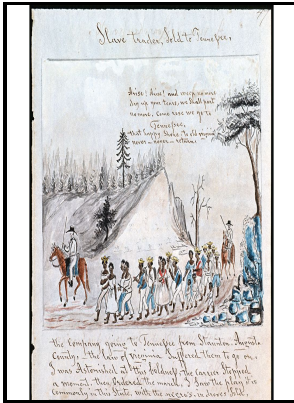 Slave trader, Sold to Tennessee,
Arise! Arise! and weep no more
dry up your tears, we shall part
no more, Come rose we go to
Tennessee,
that happy shore, to old virginia
never - never - return.
the Company going to Tennessee from Staunton, Augusta
County, - the law of virginia Suffered them to go on,
I was Astonished at this boldness, the carrier Stopped
a moment, then Ordered the march, I Saw the play it is
Commonly in this State, with the negro's in droves Sold.